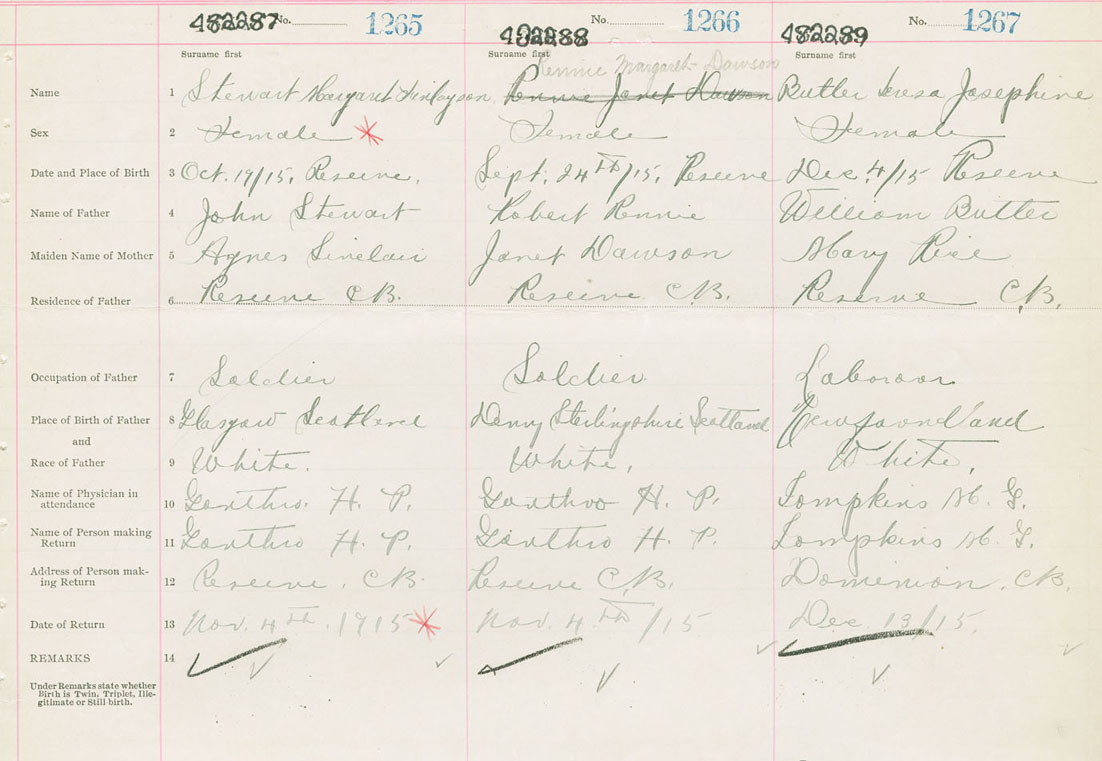 482287 No. 1265 482288 No. 1266 482289 No. 1267
Surname first Surname first Surname first
Rennie Margaret Dawson
Name 1 Stewart Margaret Finlayson Rennie Janet Dawson Butler Teresa Josephine
Sex 2 Female Female Female
Date and Place of Birth 3 Oct. 19/15, Reserve. Sept. 24TH/15, Reserve Dec. 4/15 Reserve
Name of Father 4 John Stewart Robert Rennie William Butler
Maiden Name of Mother 5 Agnes Sinclair Janet Dawson Mary Rice
Residence of Father 6 Reserve C.B. Reserve C.B. Reserve C.B.
Occupation of Father 7 Soldier Soldier Laborour
Place of Birth of Father 8 Glasgow Scotland Denny Sterlingshire Scotland Newfoundland
and
Race of Father 9 White. White, White,
Name of Physician in
attendance 10 H. P. H. P. Tompkins M. G.
Name of Person making
Return 11 H. P. H. P. Tompkins M. G.
Address of Person mak-
ing Return 12 Reserve, C.B. Reserve C.B. Dominion, C.B.
Date of Return 13 Nov. 4TH. 1915 Nov. 4TH/15 Dec. 13/15.
REMARKS 14
Under Remarks state whether
Birth is Twin, Triplet, Ille-
gitimate or Still-birth.